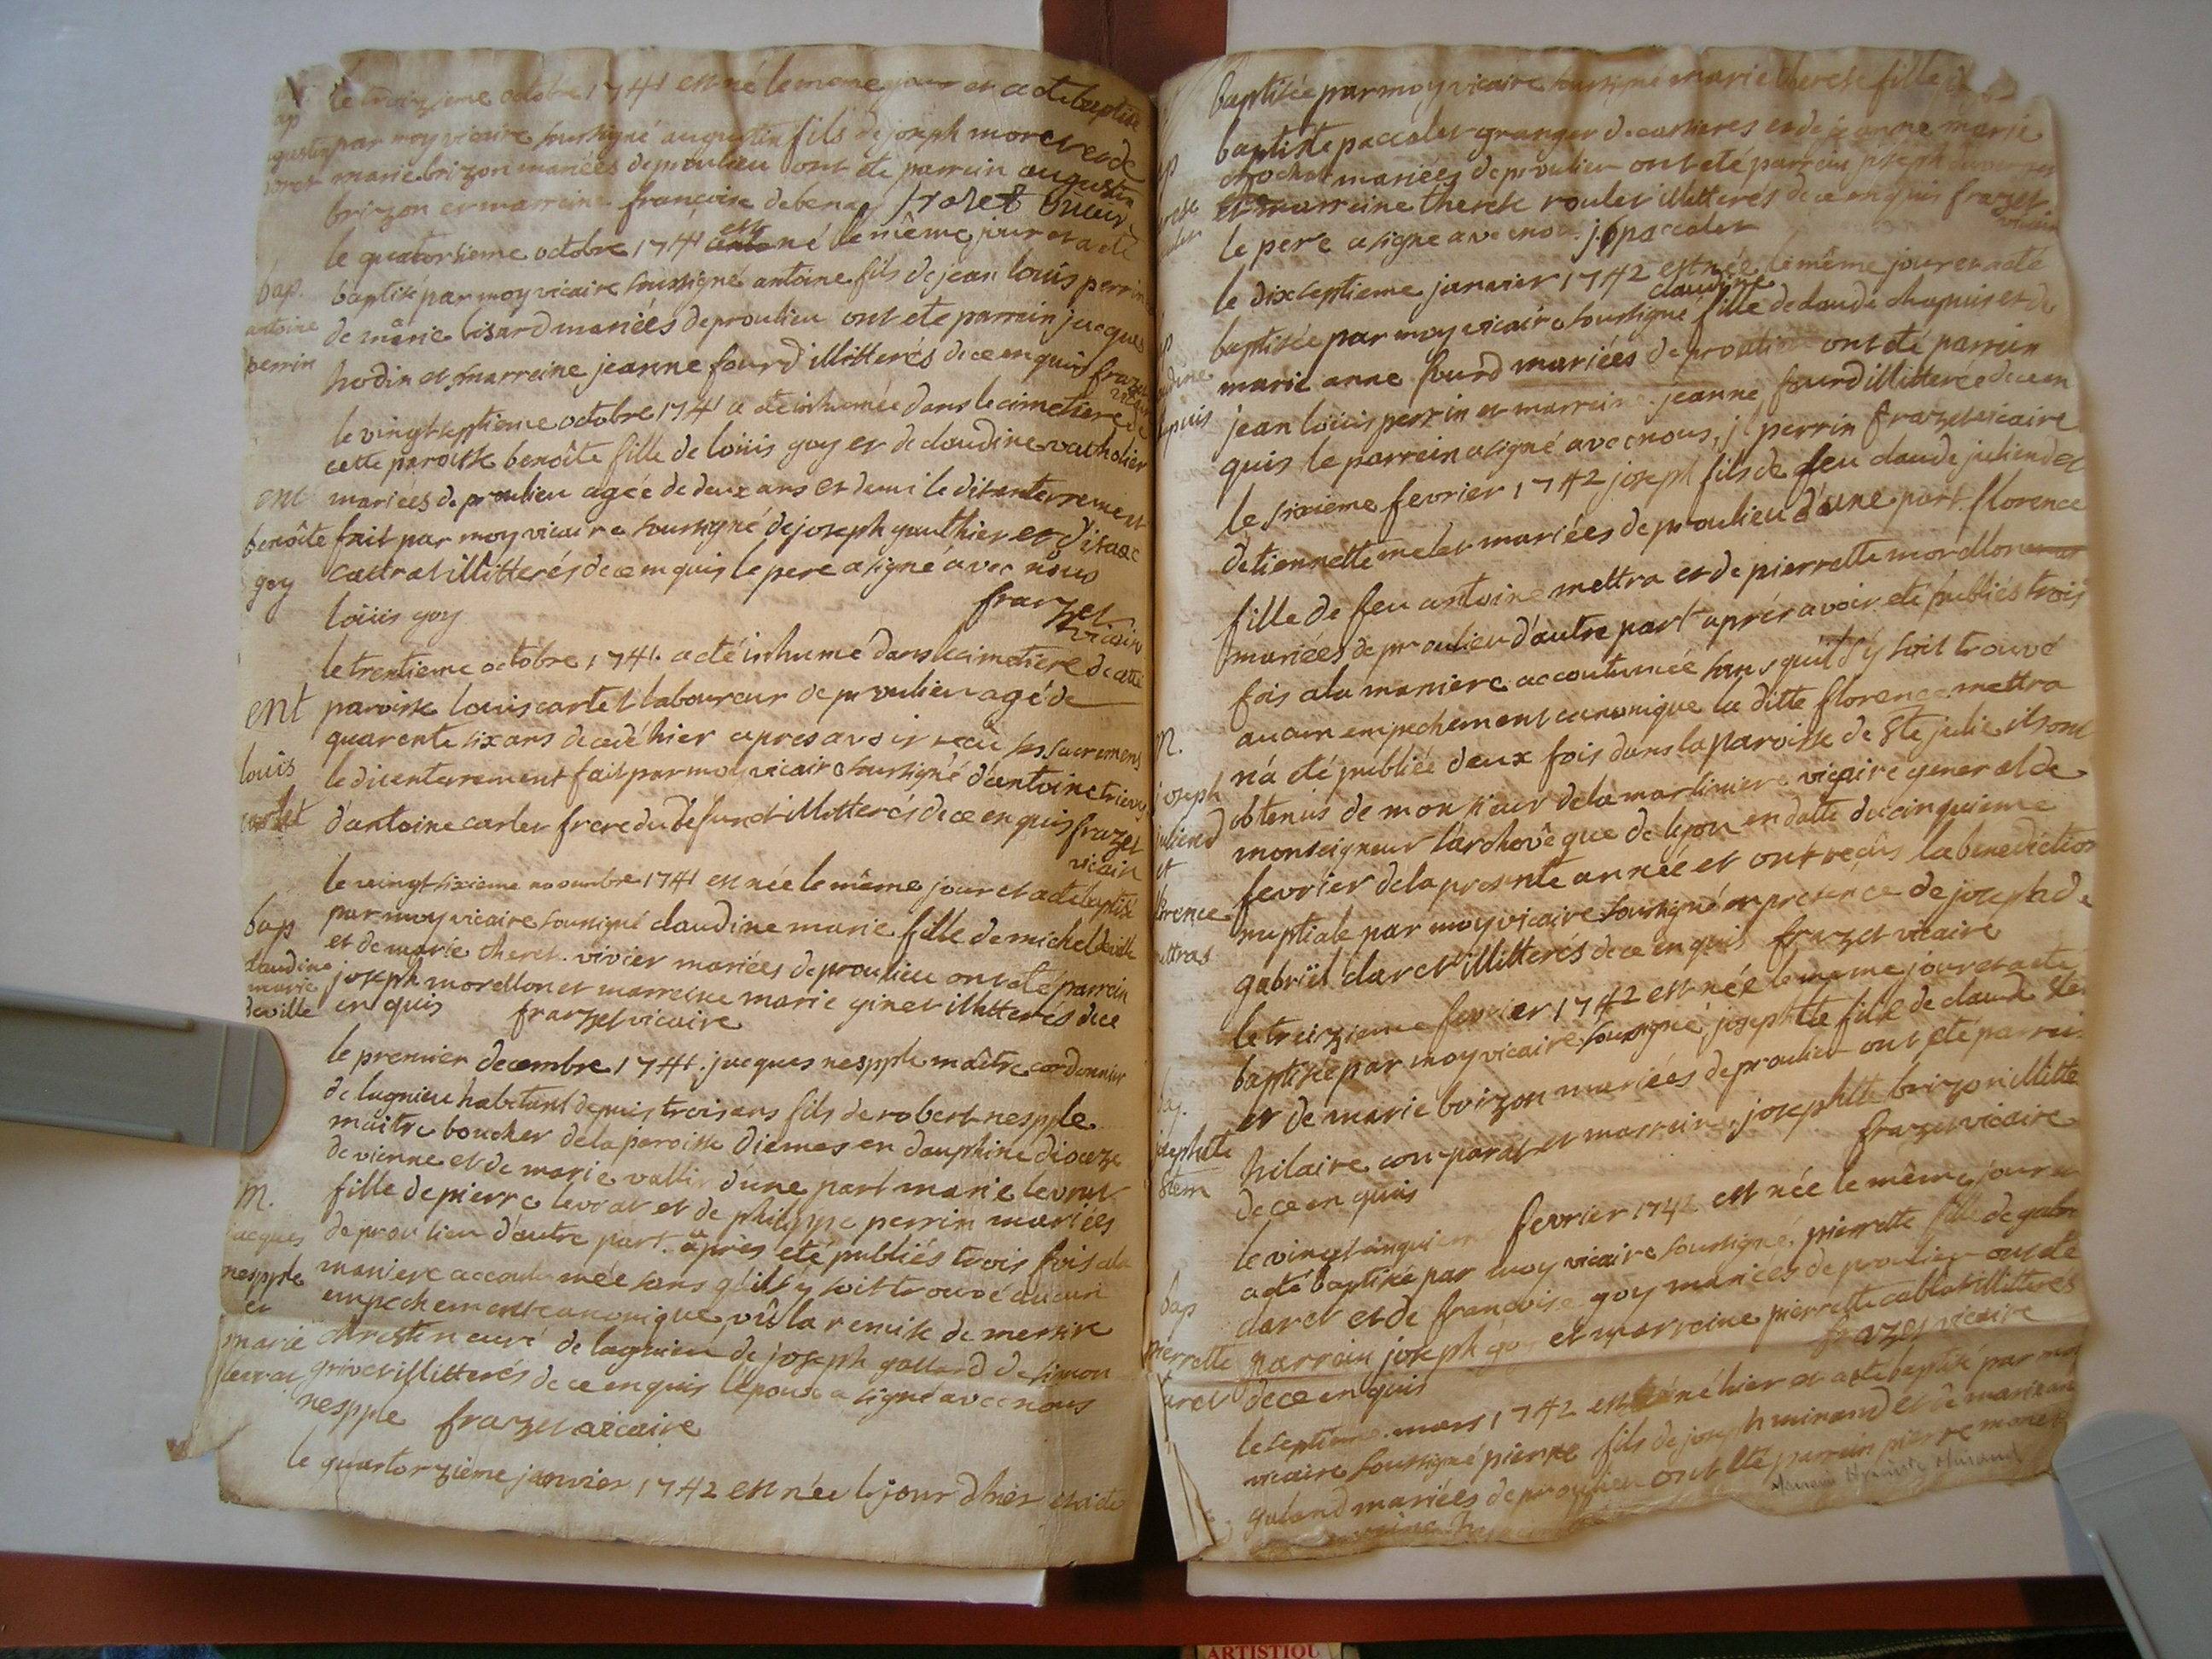 le treizieme octobre 1741 est né le meme jour et a ete baptisé
par moy vicaire soussigné augustin fils de joseph moret et de
marie brizon mariées de proulieu ont ete parrein augustin
brizon et marreine francoise debenay frazet vicair
le quatorsieme octobre 1741 est né le même jour et a eté
bap. baptisé par moy vicaire soussigné antoine fils de jean louis perrin
antoine de marie bisard mariées de proulieu ont ete parrein jacques
perrin hodin et marreine jeanne fourd illitterés de ce enquis frazet vicair
le vingtseptieme octobre 1741 a ete inhumée dans le cimetiere de
cette paroisse benôite fille de loüis goy et de claudine vacholier
ent mariées de proulieu agée de deux ans et demi le dit enterrement
benôite fait par moy vicaire soussigné de joseph gauthier et d'isaac
goy cattrat illitterés de ce enquis le pere a signé avec nous
loüis goy frazet vicair
le trentieme octobre 1741. a eté inhumé dans le cimetiere de cette
ent paroisse louis cartet laboureur de proulieu agé de
quarente six ans decedé hier apres avoir reçû ses sacremens
louis le dit enterrement fait par moy vicaire soussigné d'antoine
cartet d'antoine cartet frere du défunct illitterés de ce enquis frazet
vicair
le vingtsixieme novembre 1741 est née le même jour et a ete baptisé
bap par moy vicaire soussigné claudine marie fille de michel deville
claudine et de marie therese vivier mariées de proulieu ont ete parrein
marie joseph morellon et marreine marie ginet illitterés de ce
deville enquis frazet vicaire
le premier decembre 1741. jacques nespple maître cordonnier
de lagnieu habitant depuis trois ans fils de robert nespple
maitre boucher de la paroisse diemes en dauphiné dioceze
de vienne et de marie vallir d'une part marie levrat
M. fille de pierre levrat et de philippe perrin mariées
jacques de proulieu d'autre part. aprés eté publiés trois fois a la
nespple maniere accoutumée sans qu'il s'y soit trouvé aucun
et empechement canonique, vû la remise de messire
marie chrestin curé de lagnieu de joseph galland de simon
levrat grivet illitterés de ce enquis l'epoux a signé avec nous
nespple frazet vicaire
le quartorzième janvier 1742 est née le jour d'hier et a ete
baptisée par moy vicaire soussigné marie therese fille
baptiste paccalet granger de cartieres et de jeanne marie
chochat mariées de proulieu ont eté parrein joseph
et marreine therese roulet illitterés de ce enquis frazet
le pere a signé avec nous j b paccalet vicair
le dixseptieme janvier 1742 est née le même jour et a eté
claudine
baptisée par moy vicaire soussigné fille de claude chapuis et de
marie anne fourd mariées de proulieu ont eté parrein
jean loüis perrin et marreine jeanne fourd illitterée de ce en
quis le parrein a signé avec nous, jl perrin frazet vicaire
le sixieme fevrier 1742 joseph fils de feu claude juliend et
d'etiennette melet mariées de proulieu d'une part florence
fille de feu antoine mettra et de pierrette morellon
mariées de proulieu d'autre part aprés avoir eté publiés trois
fois a la maniere accoutumée sans qu'il s'y soit trouvé
M. aucun empechement canonique la ditte florence mettra
n'a eté publiée deux fois dans la paroisse de Ste julie ils ont
joseph obtenus de monsieur de la martiniere vicaire general de
juliend monseigneur l'archevêque de lyon en datte du cinquieme
et fevrier de la presente année et ont reçûs la benediction
florence nuptiale par moy vicaire soussigné en presence de joseph de
mettras gabriël claret illitterés de ce enquis frazet vicaire
le treizieme fevrier 1742 est née le meme jour et a ete
baptisée par moy vicaire soussigné, josephte fille de claude
bap. et de marie brizon mariées de proulieu ont eté parrein
josephte hilaire comparat et marreine, josephte brizon illitte
de ce enquis frazet vicaire
le vingtcinquieme fevrier 1742 est née le même jour et
a eté baptisée par moy vicaire soussigné, pierrette fille de gabri
bap claret et de francoise goy mariées de proulieu ont ete
pierrette parrein joseph goy et marreine pierrette cattrat illitterés
claret de ce enquis frazet vicaire
le septieme mars 1742 est né hier et a ete baptisé par moy
vicaire soussigné pierre fils de joseph mirand et de marie
galand mariées de proulieu ont ete parrein pierre moret
ARTISTIQU